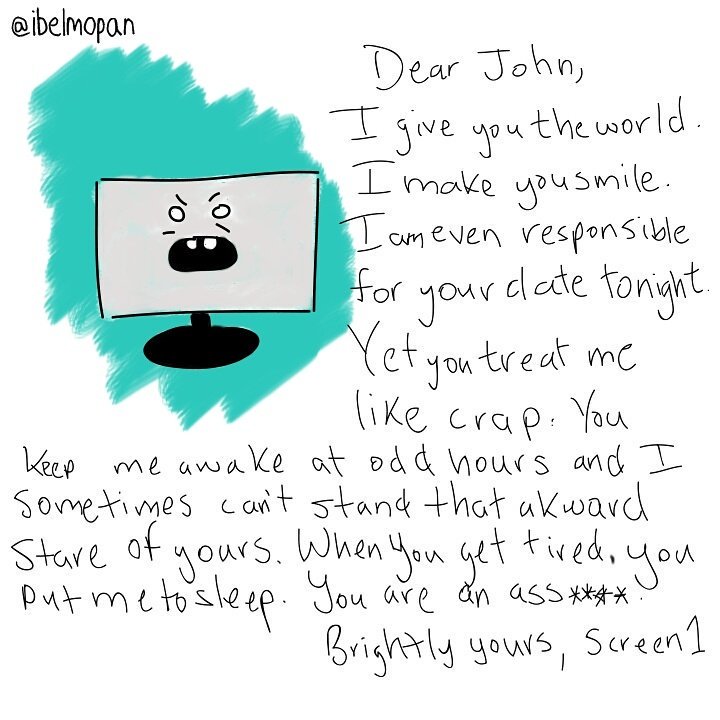 @ibelmopan
Dear John,
I give you the world.
I make you smile.
I am even responsible
for your date tonight.
Yet you treat me
like crap. You
keep me awake at odd hours and I
Sometimes can't stand that akward
Stare of yours. When you get tired, you
put me to sleep. You are an ass****.
Brightly yours, Screen1